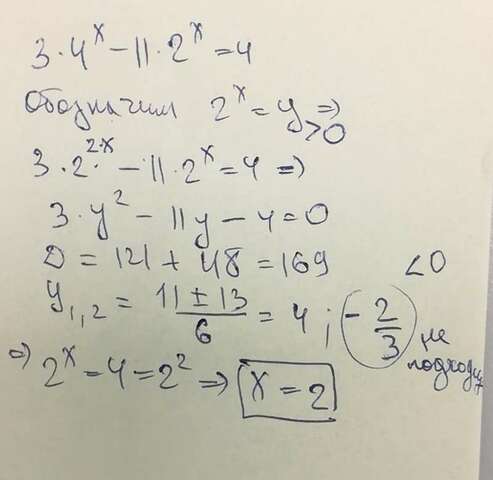 3·4^x - 11·2^x = 4
Обозначим 2^x = y ⇒
>0
3·2^{2·x} - 11·2^x = 4 ⇒
3·y² - 11y - 4 = 0
D = 121 + 48 = 169
<0
y_{1,2} = \frac{11 ± 13}{6} = 4; -\frac{2}{3} не
подходит
⇒ 2^x = 4 = 2² ⇒ x = 2